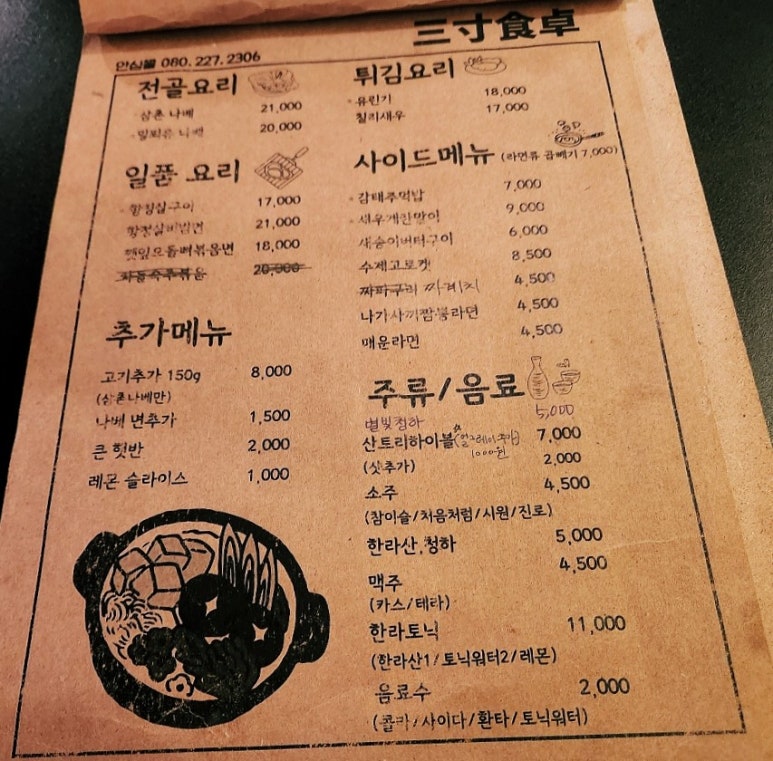 三寸食卓
안심콜 080. 227. 2306
전골요리
삼촌 나베 21,000
밀푀유 나베 20,000
일품 요리
항정살구이 17,000
항정살비빔면 21,000
깻잎오돌뼈볶음면 18,000
차돌숙주볶음 20,000
추가메뉴
고기추가 150g 8,000
(삼촌나베만)
나베 면추가 1,500
큰 햇반 2,000
레몬 슬라이스 1,000
튀김요리
유린기 18,000
칠리새우 17,000
사이드메뉴 (라면류 곱빼기 7,000)
감태주먹밥 7,000
새우계란말이 9,000
새송이버터구이 6,000
수제고로켓 8,500
짜파구리 4,500
나가사끼짬뽕라면 4,500
매운라면 4,500
주류/음료
별빛청하 5,000
산토리하이볼 (얼그레이 추가 1000원) 7,000
(샷추가) 2,000
소주 4,500
(참이슬/처음처럼/시원/진로)
한라산,청하 5,000
맥주 4,500
(카스/테라)
한라토닉 11,000
(한라산1/토닉워터2/레몬)
음료수 2,000
(콜라/사이다/환타/토닉워터)